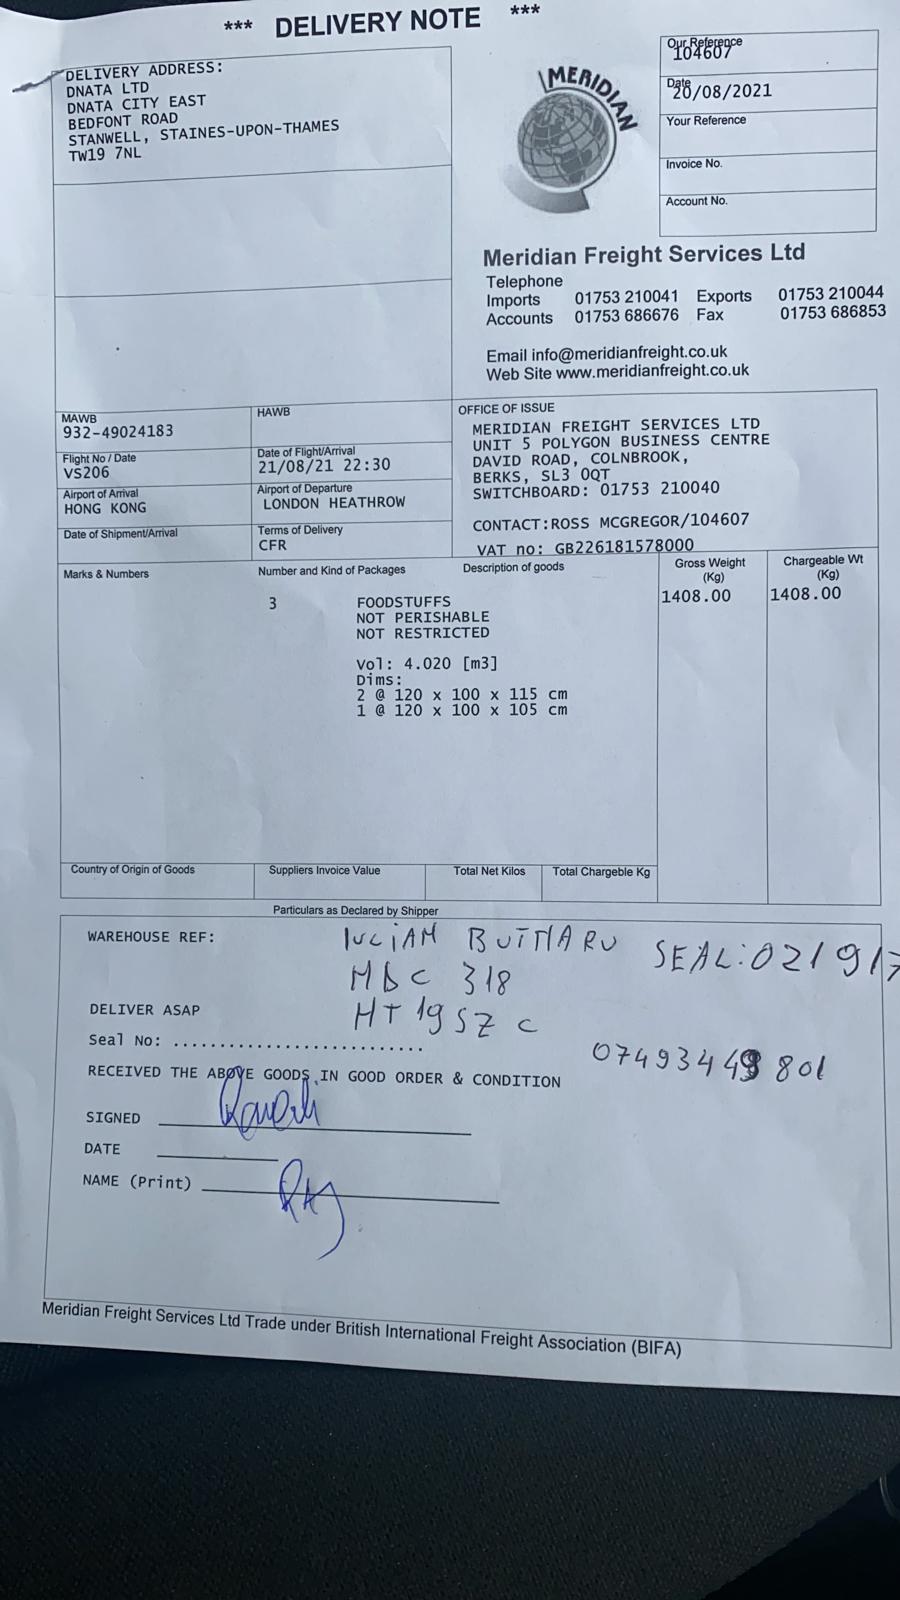 *** DELIVERY NOTE ***
DELIVERY ADDRESS:
DNATA LTD
DNATA CITY EAST
BEDFONT ROAD
STANWELL, STAINES-UPON-THAMES
TW19 7NL
MERIDIAN
Our Reference
104607
Date
20/08/2021
Your Reference
Invoice No.
Account No.
Meridian Freight Services Ltd
Telephone
Imports 01753 210041 Exports 01753 210044
Accounts 01753 686676 Fax 01753 686853
Email info@meridianfreight.co.uk
Web Site www.meridianfreight.co.uk
MAWB
932-49024183
HAWB
Flight No / Date
VS206
Date of Flight/Arrival
21/08/21 22:30
Airport of Arrival
HONG KONG
Airport of Departure
LONDON HEATHROW
Date of Shipment/Arrival
Terms of Delivery
CFR
OFFICE OF ISSUE
MERIDIAN FREIGHT SERVICES LTD
UNIT 5 POLYGON BUSINESS CENTRE
DAVID ROAD, COLNBROOK,
BERKS, SL3 0QT
SWITCHBOARD: 01753 210040
CONTACT:ROSS MCGREGOR/104607
VAT no: GB226181578000
Marks & Numbers
Number and Kind of Packages
Description of goods
Gross Weight
(Kg)
Chargeable Wt
(Kg)
3
FOODSTUFFS
NOT PERISHABLE
NOT RESTRICTED
1408.00
1408.00
Vol: 4.020 [m3]
Dims:
2 @ 120 x 100 x 115 cm
1 @ 120 x 100 x 105 cm
Country of Origin of Goods
Suppliers Invoice Value
Total Net Kilos
Total Chargeble Kg
Particulars as Declared by Shipper
WAREHOUSE REF:
SEAL:021917
318
DELIVER ASAP
Seal No: ............................
RECEIVED THE ABOVE GOODS IN GOOD ORDER & CONDITION
SIGNED
DATE
NAME (Print)
Meridian Freight Services Ltd Trade under British International Freight Association (BIFA)